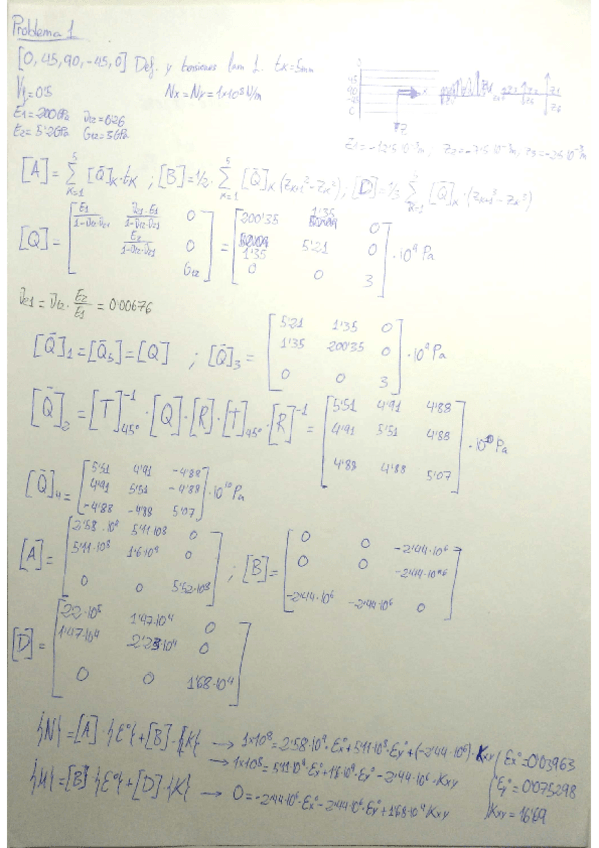 Problema 1
[0, 45, 90, -45, 0] Def. y tensiones lam 1. tk=5mm
Vf=0'5 Nx=Ny=1x10^8 N/m
E1=200GPa ν12=0'26
E2=5'2GPa G12=3GPa
z1=-12'5·10^-3 m, z2=-7'5·10^-3 m, z3=-2'5·10^-3 m
[A]=Σ(k=1→5) [Q̄]k·tk ; [B]=1/2·Σ(k=1→5) [Q̄]k·(zk+1²-zk²); [D]=1/3 Σ(k=1→5) [Q̄]k·(zk+1³-zk³)
[Q]=[E1/(1-ν12·ν21) ν21·E1/(1-ν12·ν21) 0; E2/(1-ν12·ν21) 0; G12] = [200'35 1'35 0; 1'35 5'21 0; 0 0 3]·10^9 Pa
ν21=ν12·E2/E1=0'00676
[Q̄]1=[Q̄]5=[Q] ; [Q̄]3=[5'21 1'35 0; 1'35 200'35 0; 0 0 3]·10^9 Pa
[Q̄]2=[T]45°^-1·[Q]·[R]·[T]45°·[R]^-1=[5'51 4'91 4'88; 4'91 5'51 4'88; 4'88 4'88 5'07]·10^10 Pa
[Q̄]4=[5'51 4'91 -4'88; 4'91 5'51 -4'88; -4'88 -4'88 5'07]·10^10 Pa
[A]=[2'58·10^9 5'11·10^8 0; 5'11·10^8 1'6·10^9 0; 0 0 5'52·10^8] ; [B]=[0 0 -2'44·10^6; 0 0 -2'44·10^6; -2'44·10^6 -2'44·10^6 0]
[D]=[2'2·10^5 1'47·10^4 0; 1'47·10^4 2'23·10^4 0; 0 0 1'68·10^4]
{N}=[A]·{ε°}+[B]·{K} → 1x10^8=2'58·10^9·εx°+5'11·10^8·εy°+(-2'44·10^6)·Kxy εx°=0'03963
→ 1x10^8=5'11·10^8·εx°+1'6·10^9·εy°-2'44·10^6·Kxy εy°=0'075298
{M}=[B]·{ε°}+[D]·{K} → 0=-2'44·10^6·εx°-2'44·10^6·εy°+1'68·10^4·Kxy Kxy=16'69